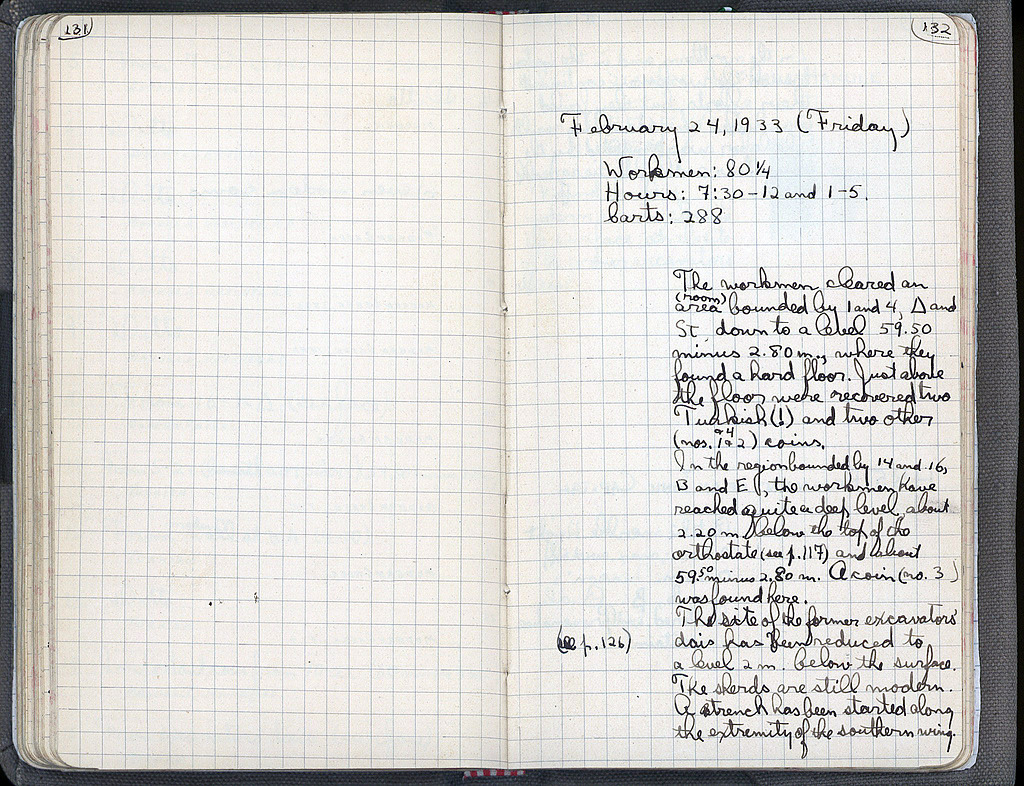 131
132
February 24, 1933 (Friday)
Workmen: 80 1/4
Hours: 7:30-12 and 1-5.
Carts: 288
The workmen cleared an
(room)
area bounded by 1 and 4, Δ and
ΣΤ, down to a level 59.50
minus 2.80 m., where they
found a hard floor. Just above
the floor were recovered two
Turkish (!) and two other
& 4
(nos. 1 & 2) coins.
In the region bounded by 14 and 16,
B and E, the workmen have
reached quite a deep level, about
2.20 m. below the top of the
orthostate (see p. 117) and about
59.50 minus 2.80 m. A coin (no. 3)
was found here.
The site of the former excavators'
(see p. 126) dais has been reduced to
a level 2 m. below the surface.
The sherds are still modern.
A trench has been started along
the extremity of the southern wing.